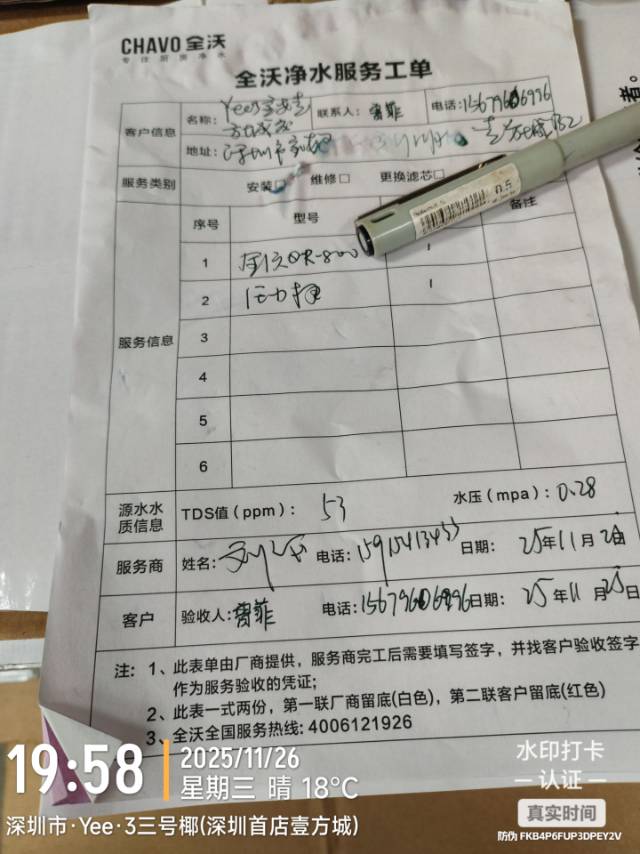 CHAVO 全沃
专注厨房净水
全沃净水服务工单
客户信息 名称: Yee 联系人: 曾菲 电话:
地址: 深圳市
服务类别 安装☑ 维修□ 更换滤芯□
序号 型号 备注
服务信息
1 全沃QR-800 1
2 压力桶 1
3
4
5
6
源水水质信息 TDS值(ppm): 53 水压(mpa): 0.28
服务商 姓名: 电话: 15915413455 日期: 25年11月
客户 验收人: 曾菲 电话: 日期: 25年11月25日
注: 1、此表单由厂商提供,服务商完工后需要填写签字,并找客户验收签字
作为服务验收的凭证;
2、此表一式两份,第一联厂商留底(白色),第二联客户留底(红色)
3、全沃全国服务热线: 4006121926
19:58 2025/11/26
星期三 晴 18℃
深圳市·Yee·3三号椰(深圳首店壹方城)
水印打卡
认证
真实时间
防伪 FKB4P6FUP3DPEY2V
者。
0.5